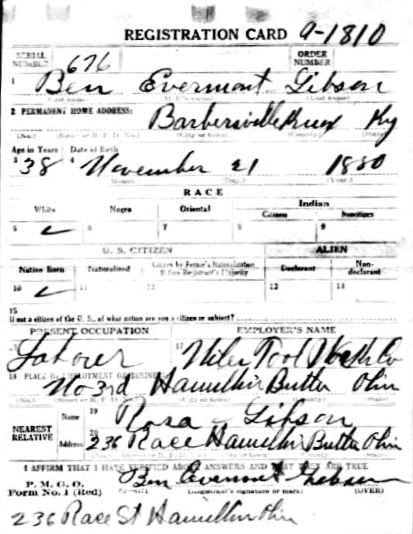 REGISTRATION CARD 9-1810
SERIAL NUMBER 676 ORDER NUMBER
1 Ben Evermont Gibson
2 PERMANENT HOME ADDRESS:
Barbersville Knox Ky
(No.) (Street or R. F. D. No.) (City or town) (County) (State)
Age in Years Date of Birth
38 November 21 1880
(Month.) (Day.) (Year.)
RACE
White Negro Oriental Indian
Citizen Noncitizen
5 ✓ 6 7 8 9
U. S. CITIZEN ALIEN
Native Born Naturalized Citizen by Father's Naturalization Before Registrant's Majority Declarant Non-declarant
10 ✓ 11 12 13 14
15
If not a citizen of the U. S., of what nation are you a citizen or subject?
PRESENT OCCUPATION EMPLOYER'S NAME
Laborer 17 Niles Tool Works Co
18 PLACE OF EMPLOYMENT OR BUSINESS
No 3rd Hamilton Butler Ohio
(No.) (Street or R. F. D. No.) (City or town) (County) (State)
NEAREST RELATIVE
Name 19 Rosa Gibson
Address 20 236 Race Hamilton Butler Ohio
I AFFIRM THAT I HAVE VERIFIED ABOVE ANSWERS AND THAT THEY ARE TRUE
P. M. G. O.
Form No. 1 (Red) Ben Evermont Gibson
(Registrant's signature or mark) (OVER)
236 Race St Hamilton Ohio